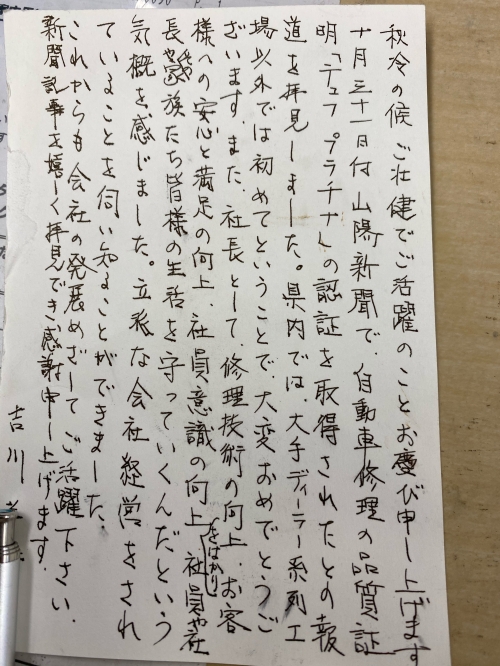 秋冷の候 ご壮健でご活躍のこととお慶び申し上げます
十月三十一日付 山陽新聞で、自動車修理の品質証
明「テュフ プラチナ」の認証を取得されたとの報
道を拝見しました。県内では、大手ディーラー系列工
場以外では初めてということで、大変おめでとうご
ざいます。また、社長として、修理技術の向上、お客
様への安心と満足の向上、社員意識の向上をはかり、社員や社
長や家族たち皆様の生活を守っていくんだという
気概を感じました。立派な会社経営をされ
ていることを伺い知ることができました。
これからも会社の発展めざして ご活躍下さい。
新聞記事を嬉しく拝見でき感謝申し上げます。
吉川